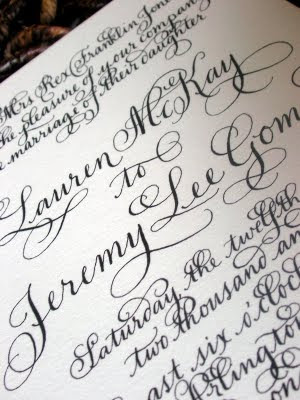 Mrs Rex Franklin Jone
the pleasure of your company
e marriage of their daughter
Lauren McKay
to
Jeremy Lee Gom
Saturday the twelfth
two thousand an
ast six o'cloc
Arlington